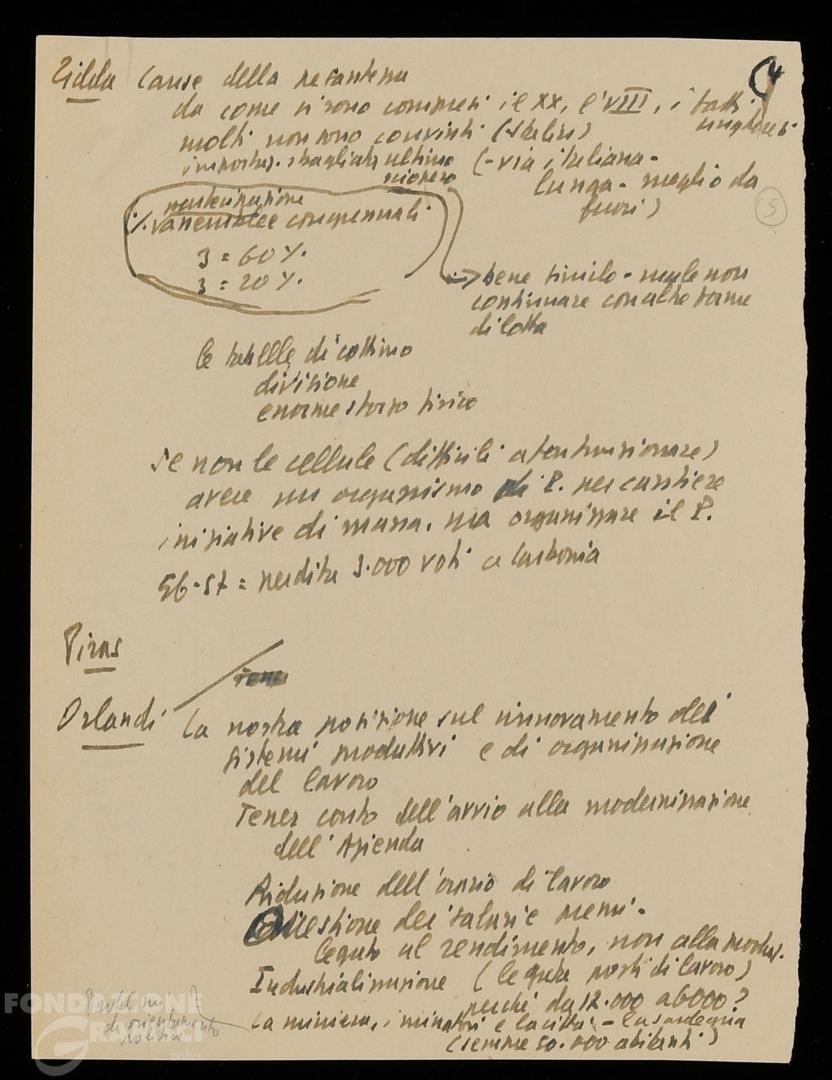 Zidda cause della pesantezza
4
da come si sono commessi il XX, l'VIII, i fatti
ungheresi
molti non sono convinti (Stalin)
impostaz. sbagliata ultimo
sciopero
(- via italiana -
lunga - meglio da
fuori)
5
% variabili compensuali
3 = 60 %.
3 = 20 %.
→ bene farlo - male non
continuare con altre forme
di lotta
le tabelle di cottimo
divisione
enorme sforzo fisico
se non le cellule (difficili a far funzionare)
avere un organismo di P. nel cantiere
iniziative di massa, ma organizzare il P.
56-57 = perdita 3.000 voti a Carbonia
Piras
Orlandi la nostra posizione sul rinnovamento dei
sistemi produttivi e di organizzazione
del lavoro
Tener conto dell'avvio alla modernizzazione
dell'Azienda
Riduzione dell'orario di lavoro
Questione dei salari e premi -
legato al rendimento, non alla produz.
Industrializzazione (legata posti di lavoro)
perché da 12.000 a 6000?
la miniera, i minatori e la città - la Sardegna
(semme 50.000 abitanti)
Problemi
di orientamento
politico
FONDAZIONE
GRAMSCI
onlus